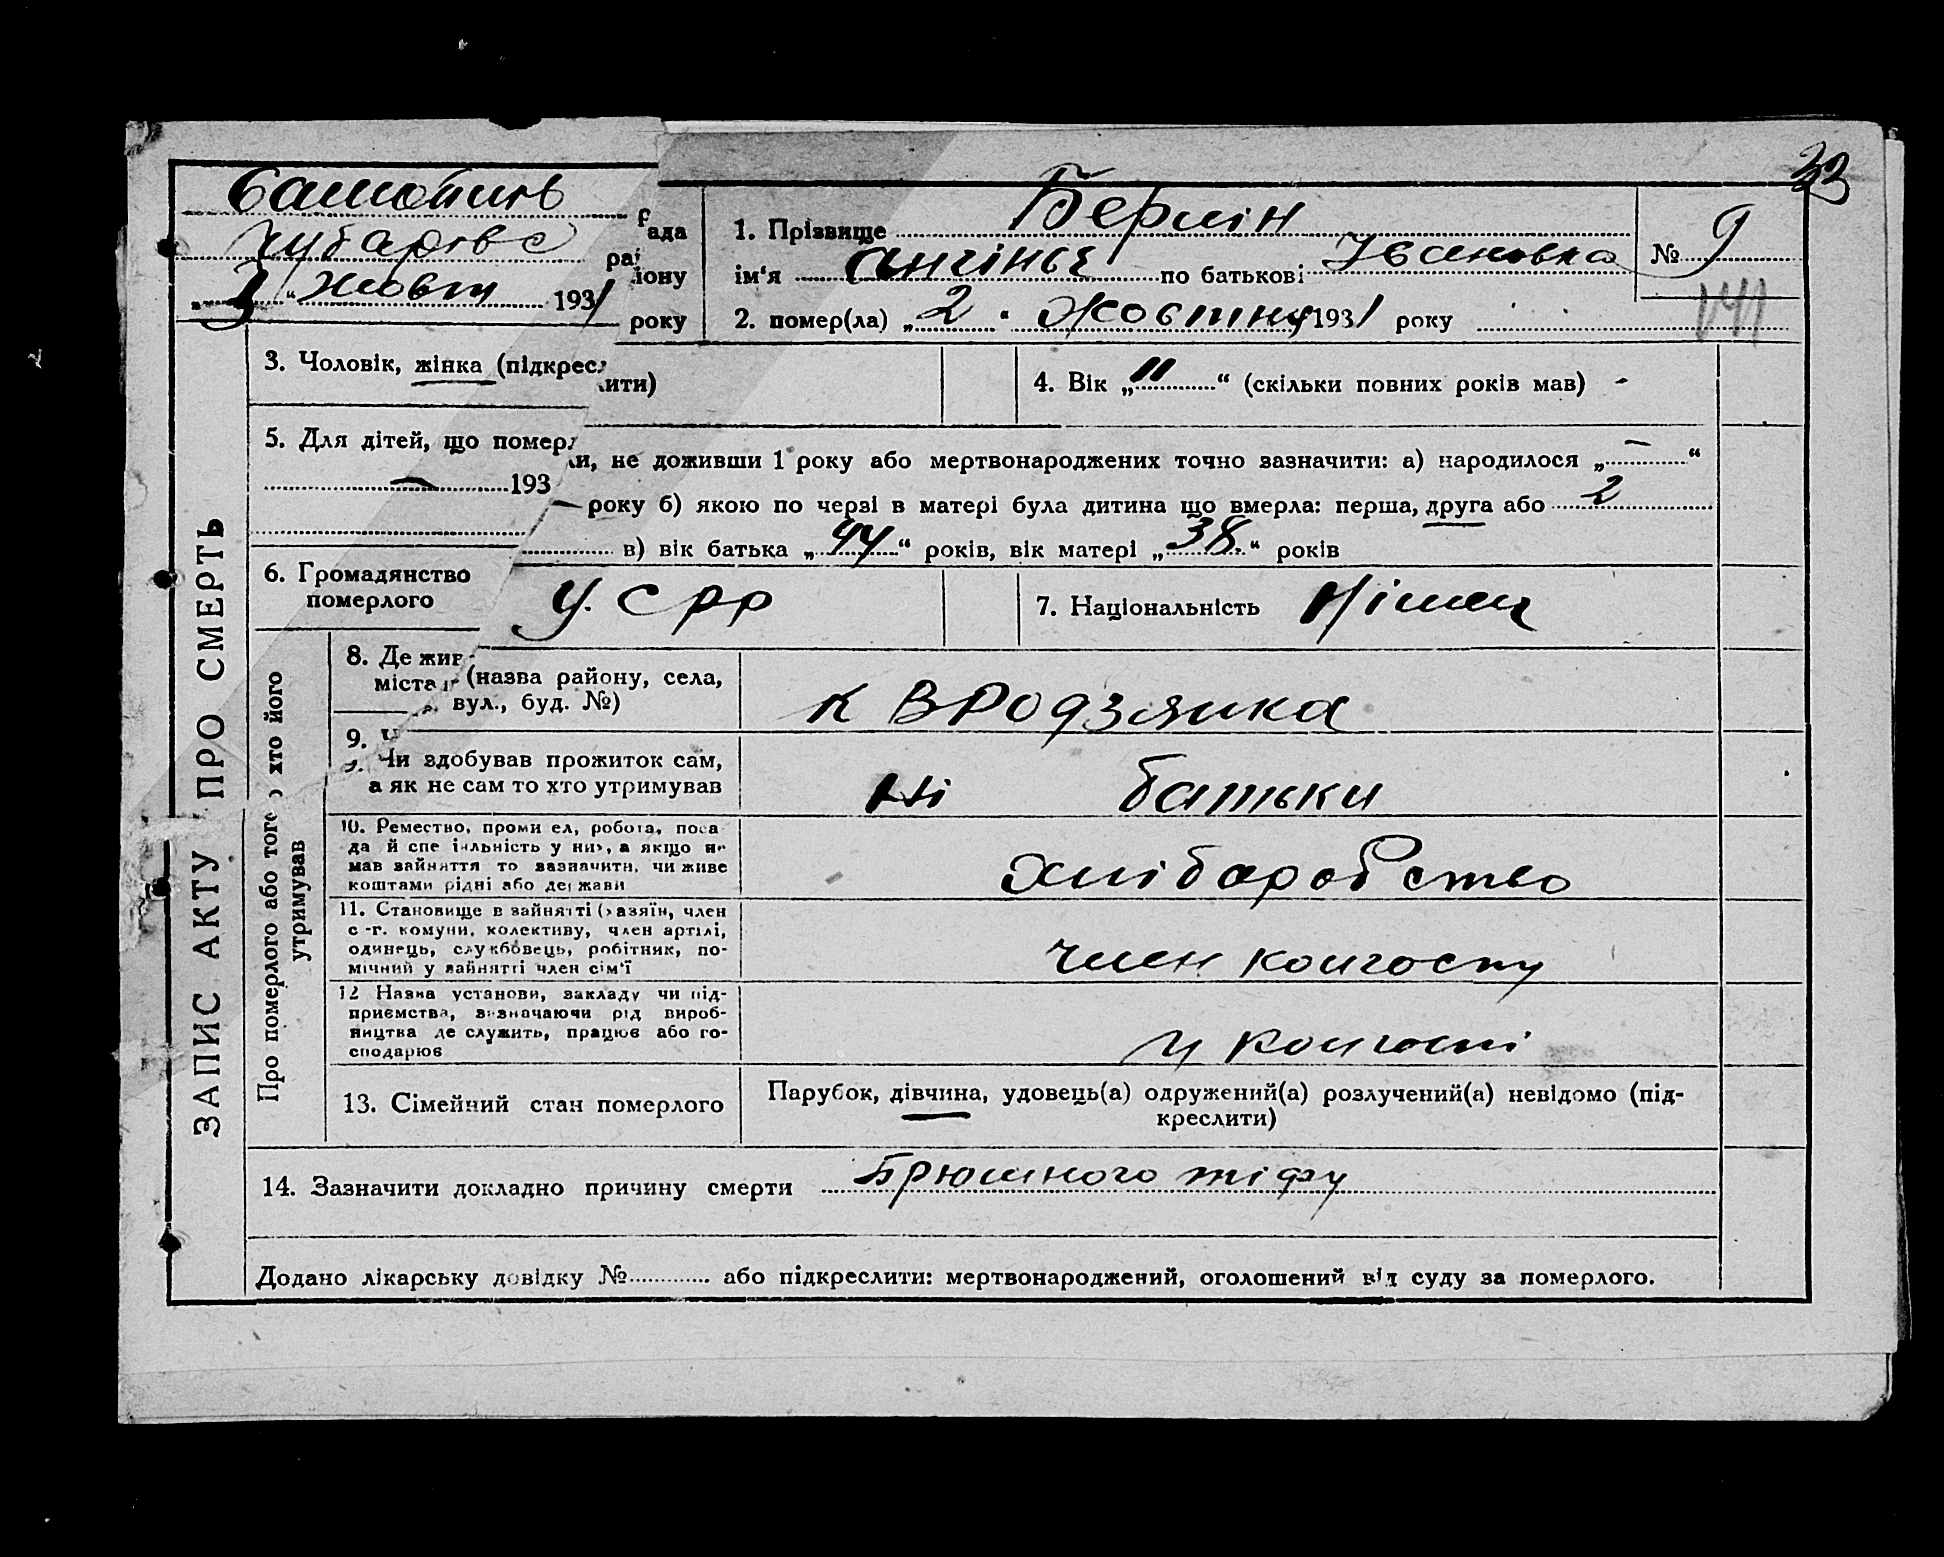 33
рада
Чубарівс району
„3“ Жовт 1931 року
1. Прізвище Берлін
ім‘я по батькові Ивановна
2. помер(ла) „2“ Жовтня 1931 року
№ 9
141
ЗАПИС АКТУ ПРО СМЕРТЬ
3. Чоловік, жінка (підкреслити)
4. Вік „11“ (скільки повних років мав) -
5. Для дітей, що померли, не доживши 1 року або мертвонароджених точно зазначити: а) народилося „—“
— 193 — року б) якою по черзі в матері була дитина що вмерла: перша, друга або 2
в) вік батька „44“ років, вік матері „38“ років
6. Громадянство померлого
У. С р р
7. Національність Німец
Про померлого або того хто його утримував
8. Де жив (назва району, села,
міста вул., буд. №)
к В Родзянка
9. Чи здобував прожиток сам,
а як не сам то хто утримував
Ні батьки
10. Ремество, проми ел, робота, поса
да й спе іальність у ни, а якщо не
мав зайняття то зазначити, чи живе
коштами рідні або держави
Хліборобство
11. Становище в зайнятті (хазяїн, член
с -г. комуни, колективу, член артілі,
одинець, службовець, робітник, по-
мічний у зайнятті член сім'ї
член колгоспу
12 Назва установи, закладу чи під-
приємства, визначаючи рід вироб-
ництва де служить, працює або го-
сподарює
у колгоспі
13. Сімейний стан померлого
Парубок, дівчина, удовець(а) одружений(а) розлучений(а) невідомо (під-
креслити)
14. Зазначити докладно причину смерти Брюшного тіфу
Додано лікарську довідку № або підкреслити: мертвонароджений, оголошений від суду за померлого.